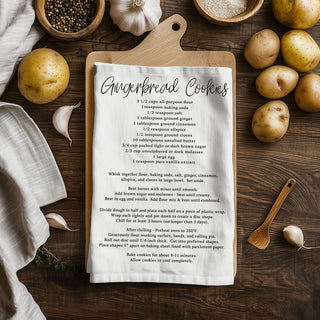 Gingerbread Cookies
3 1/2 cups all-purpose flour
1 teaspoon baking soda
1/2 teaspoon salt
1 tablespoon ground ginger
1 tablespoon ground cinnamon
1/2 teaspoon allspice
1/2 teaspoon ground cloves
10 tablespoons unsalted butter
3/4 cup packed light or dark brown sugar
2/3 cup unsulphured or dark molasses
1 large egg
1 teaspoon pure vanilla extract
Whisk together flour, baking soda, salt, ginger, cinnamon,
allspice, and cloves in large bowl. Set aside.
Beat butter with mixer until smooth.
Add brown sugar and molasses - beat until creamy.
Beat in egg and vanilla. Add flour mix & beat until combined.
Divide dough in half and place each half on a piece of plastic wrap.
Wrap each tightly and pat down to create a disc shape.
Chill for at least 3 hours (no longer than 3 days).
After chilling - Preheat oven to 350°F.
Generously flour working surface, hands, and rolling pin.
Roll out disc until 1/4-inch thick. Cut into preferred shapes.
Place shapes 1" apart on baking sheet lined with parchment paper.
Bake cookies for about 8-11 minutes.
Allow cookies to cool completely.